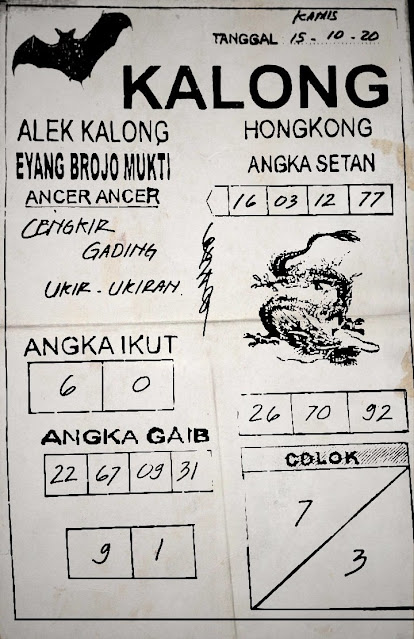 KAMIS
TANGGAL 15 - 10 - 20
KALONG
ALEK KALONG
EYANG BROJO MUKTI
ANCER ANCER
CENGKIR
GADING
UKIR - UKIRAN
HONGKONG
ANGKA SETAN
16 03 12 77
ANGKA IKUT
6 0
ANGKA GAIB
22 67 09 31
9 1
26 70 92
COLOK
7
3